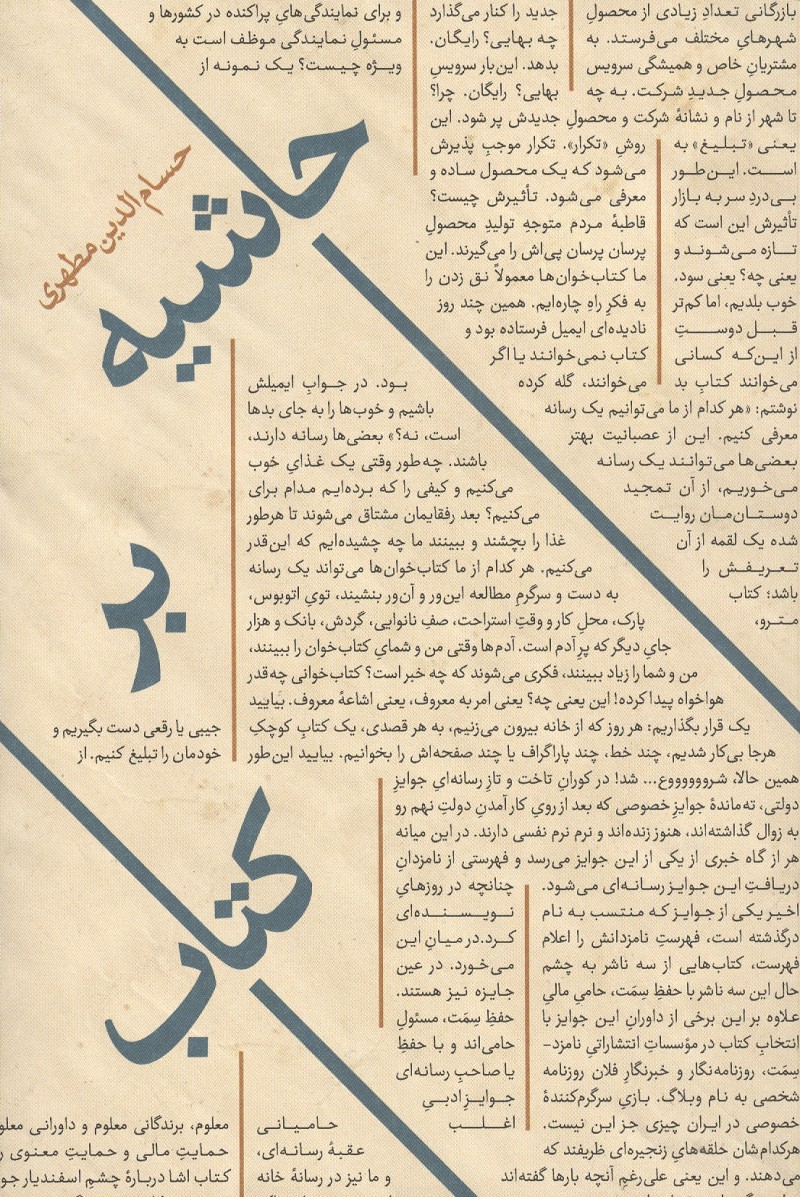 حاشیه
بر
کتاب
حسام‌الدین مطهری
بازرگانی تعدادِ زیادی از محصولِ جدید را کنار می‌گذارد و برای نمایندگی‌هایِ پراکنده در کشورها و
شهرهایِ مختلف می‌فرستد. به چه بهایی؟ رایگان. مسئولِ نمایندگی موظف است به
مشتریانِ خاص و همیشگی سرویس بدهد. این‌بار سرویسِ ویژه چیست؟ یک نمونه از
محصولِ جدیدِ شرکت. به چه بهایی؟ رایگان. چرا؟
تا شهر از نام و نشانهٔ شرکت و محصولِ جدیدش پر شود. این
یعنی «تبلیغ» به روشِ «تکرار». تکرار موجبِ پذیرش
است. این‌طور می‌شود که یک محصول ساده و
بی‌دردِ سر به بازار معرفی می‌شود. تأثیرش چیست؟
تأثیرش این است که قاطبهٔ مردم متوجهِ تولیدِ محصولِ
تازه می‌شوند و پرسان پرسان پی‌اش را می‌گیرند. این
یعنی چه؟ یعنی سود. ما کتاب‌خوان‌ها معمولاً نق زدن را
خوب بلدیم، اما کم‌تر به فکرِ راهِ چاره‌ایم. همین چند روز
قبل دوستِ نادیده‌ای ایمیل فرستاده بود و
از این‌که کسانی کتاب نمی‌خوانند یا اگر
می‌خوانند کتابِ بد می‌خوانند، گله کرده بود. در جوابِ ایمیلش
نوشتم: «هر کدام از ما می‌توانیم یک رسانه باشیم و خوب‌ها را به جای بدها
معرفی کنیم. این از عصبانیت بهتر است، نه؟» بعضی‌ها رسانه دارند،
بعضی‌ها می‌توانند یک رسانه باشند. چه‌طور وقتی یک غذایِ خوب
می‌خوریم، از آن تمجید می‌کنیم و کیفی را که برده‌ایم مدام برای
دوستان‌مان روایت می‌کنیم؟ بعد رفقایمان مشتاق می‌شوند تا هرطور
شده یک لقمه از آن غذا را بچشند و ببینند ما چه چشیده‌ایم که این‌قدر
تعریفش را می‌کنیم. هر کدام از ما کتاب‌خوان‌ها می‌تواند یک رسانه
باشد؛ کتاب به دست و سرگرمِ مطالعه این‌ور و آن‌ور بنشیند، تویِ اتوبوس،
مترو، پارک، محلِ کار و وقتِ استراحت، صفِ نانوایی، گردش، بانک و هزار
جایِ دیگر که پرِ آدم است. آدم‌ها وقتی من و شمایِ کتاب‌خوان را ببینند،
من و شما را زیاد ببینند، فکری می‌شوند که چه خبر است؟ کتاب‌خوانی چه‌قدر
هواخواه پیدا کرده! این یعنی چه؟ یعنی امر به معروف، یعنی اشاعهٔ معروف. بیایید
یک قرار بگذاریم: هر روز که از خانه بیرون می‌زنیم، به هر قصدی، یک کتابِ کوچکِ جیبی یا رقعی دست بگیریم و
هرجا بی‌کار شدیم، چند خط، چند پاراگراف یا چند صفحه‌اش را بخوانیم. بیایید این‌طور خودمان را تبلیغ کنیم. از
همین حالا، شرووووووع... شد! در کورانِ تاخت و تازِ رسانه‌ایِ جوایزِ
دولتی، ته‌ماندهٔ جوایزِ خصوصی که بعد از رویِ کار آمدنِ دولتِ نهم رو
به زوال گذاشته‌اند، هنوز زنده‌اند و نرم نرم نفسی دارند. در این میانه
هر از گاه خبری از یکی از این جوایز می‌رسد و فهرستی از نامزدانِ
دریافتِ این جوایز رسانه‌ای می‌شود. چنانچه در روزهایِ
اخیر یکی از جوایز که منتسب به نام نویسنده‌ای
درگذشته است، فهرستِ نامزدانش را اعلام کرد. در میانِ این
فهرست، کتاب‌هایی از سه ناشر به چشم می‌خورد. در عین
حال این سه ناشر با حفظِ سِمَت، حامیِ مالیِ جایزه نیز هستند.
علاوه بر این برخی از داورانِ این جوایز با حفظِ سِمَت، مسئولِ
انتخابِ کتاب در مؤسساتِ انتشاراتیِ نامزد- حامی‌اند و با حفظِ
سِمَت، روزنامه‌نگار و خبرنگارِ فلان روزنامه یا صاحبِ رسانه‌ای
شخصی به نام وبلاگ. بازیِ سرگرم‌کنندهٔ جوایزِ ادبیِ
خصوصی در ایران چیزی جز این نیست. اغلب حامیانی معلوم، برندگانی معلوم و داورانی
هرکدام‌شان حلقه‌هایِ زنجیره‌ای ظریفند که عقبهٔ رسانه‌ای، حمایتِ مالی و حمایتِ معنوی
می‌دهند. و این یعنی علی‌رغمِ آنچه بارها گفته‌اند و ما نیز در رسانهٔ خانه کتاب اشا دربارهٔ چشمِ اسفندیار